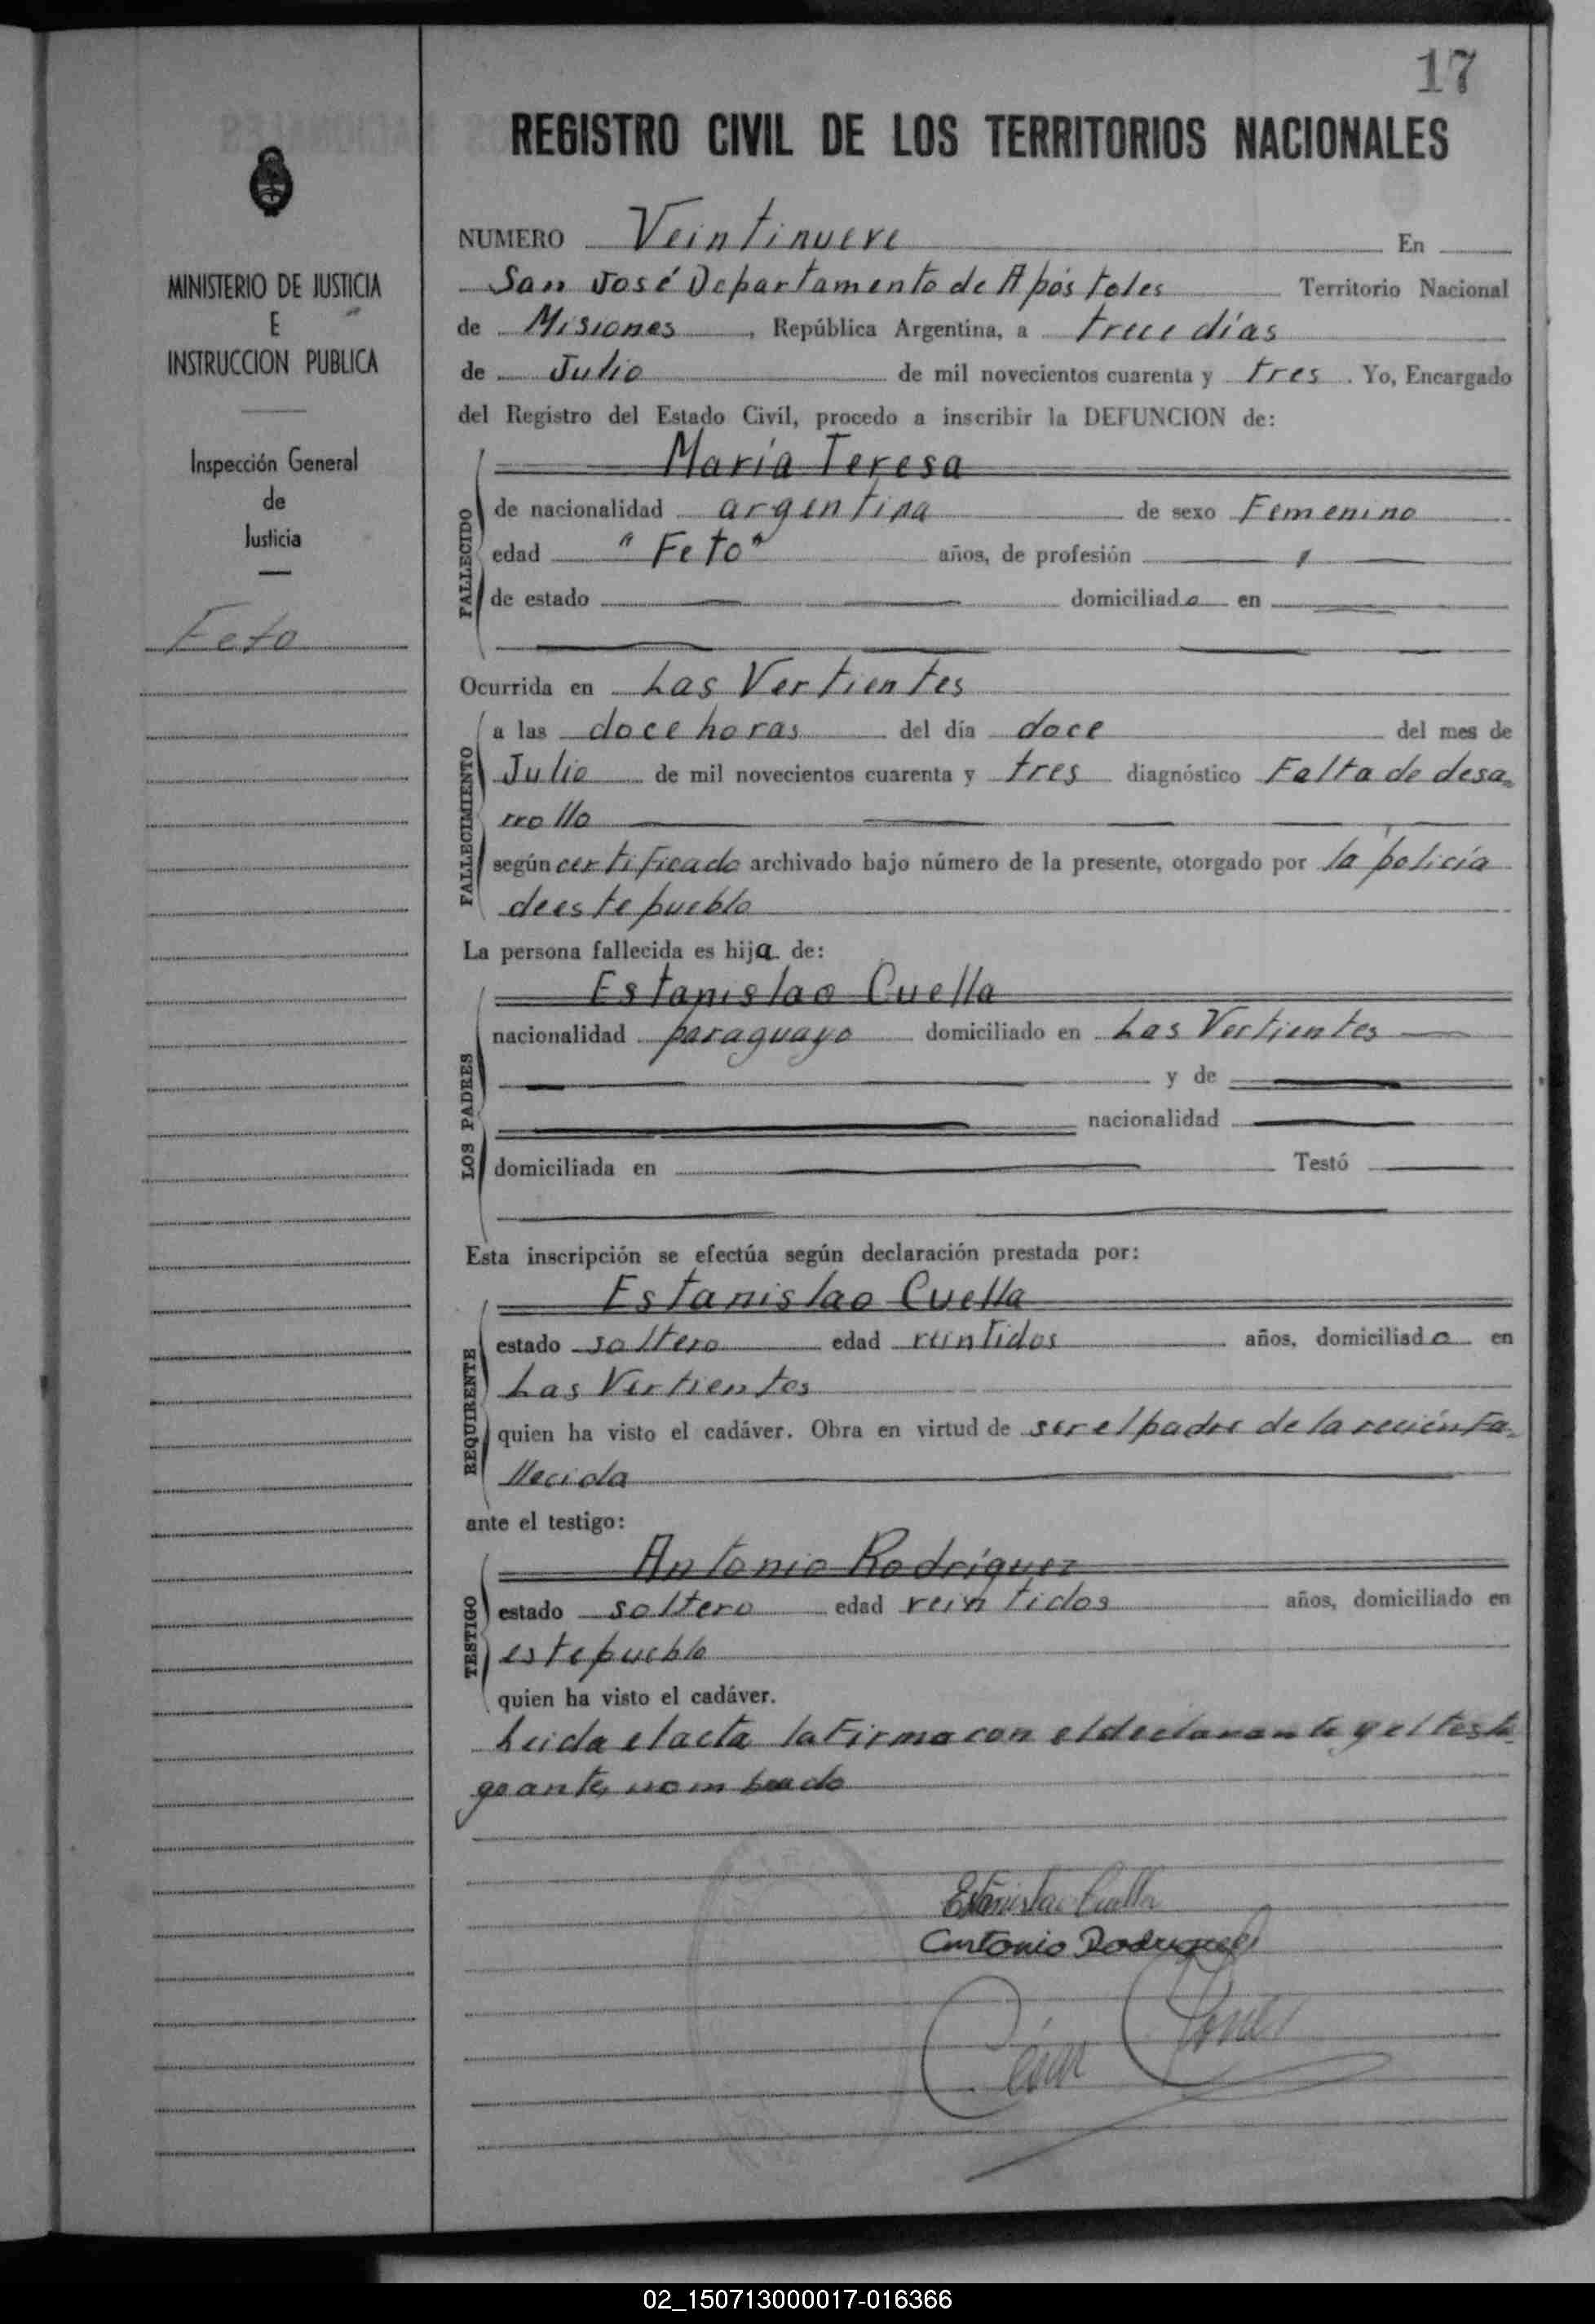 17
REGISTRO CIVIL DE LOS TERRITORIOS NACIONALES
MINISTERIO DE JUSTICIA
E
INSTRUCCION PUBLICA
Inspección General
de
Justicia
Feto
NUMERO Veintinueve En
San José Departamento de Apóstoles Territorio Nacional
de Misiones, República Argentina, a trece días
de Julio de mil novecientos cuarenta y tres. Yo, Encargado
del Registro del Estado Civil, procedo a inscribir la DEFUNCION de:
María Teresa
FALLECIDO
de nacionalidad argentina de sexo Femenino
edad "Feto" años, de profesión
de estado domiciliado en
Ocurrida en Las Vertientes
FALLECIMIENTO
a las doce horas del día doce del mes de
Julio de mil novecientos cuarenta y tres diagnóstico Falta de desa-
rrollo
según certificado archivado bajo número de la presente, otorgado por la policía
de este pueblo
La persona fallecida es hija de:
LOS PADRES
Estanislao Cuella
nacionalidad paraguayo domiciliado en Las Vertientes
y de
nacionalidad
domiciliada en Testó
Esta inscripción se efectúa según declaración prestada por:
REQUIRENTE
Estanislao Cuella
estado soltero edad veintidos años, domiciliado en
Las Vertientes
quien ha visto el cadáver. Obra en virtud de ser el padre de la recién fa-
llecida
ante el testigo:
TESTIGO
Antonio Rodríguez
estado soltero edad veintidos años, domiciliado en
este pueblo
quien ha visto el cadáver.
Leida el acta la firma con el declarante y el testi-
go antes nombrado
Estanislao Cuella
Antonio Rodriguez
César
02_150713000017-016366